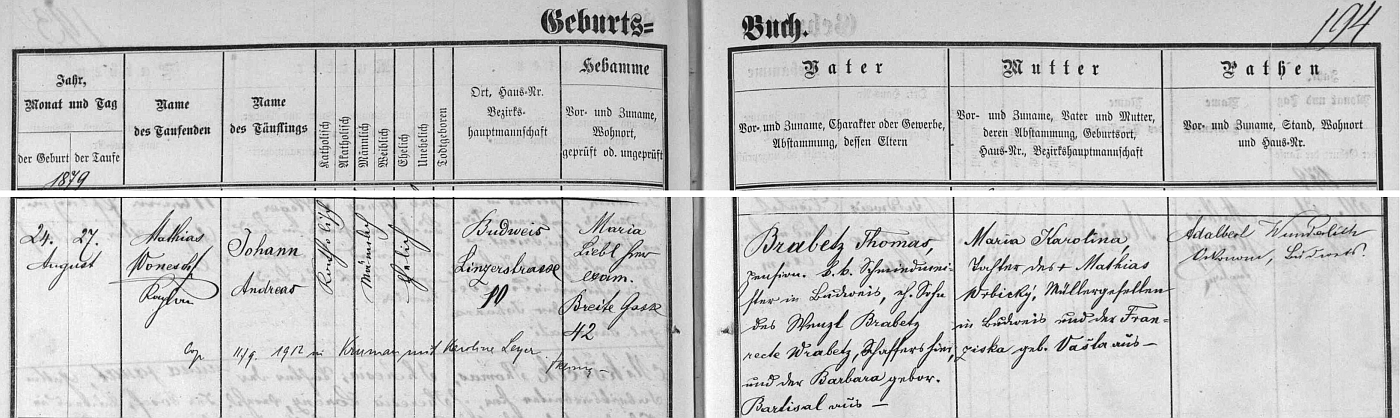 Geburts=
Buch.
194
Jahr,
Monat und Tag
der Geburt
der Taufe
1879
Name
des Taufenden
Name
des Täuflings
Katholisch
Akatholisch
Männlich
Weiblich
Ehelich
Unehelich
Todtgeboren
Ort, Haus-Nr.
Bezirks-
hauptmannschaft
Hebamme
Vor- und Zuname,
Wohnort,
geprüft od. ungeprüft
Vater
Vor- und Zuname, Charakter oder Gewerbe,
Abstammung, dessen Eltern
Mutter
Vor- und Zuname, Vater und Mutter,
deren Abstammung, Geburtsort,
Haus-Nr., Bezirkshauptmannschaft
Pathen
Vor- und Zuname, Stand, Wohnort
und Haus-Nr.
24. 27.
August
Mathias
Wonesch
Kaplan
Johann
Andreas
Katholisch
Männlich
Ehelich
Budweis
Linzerstrasse
10
Maria
Liebl hier
exam.
Breite Gasse
42
Cop. 11/9. 1912 in Krumau mit Karoline Leyer
Brabetz Thomas,
pension. k. k.
in Budweis, eh. Sohn
des Wenzl Brabetz
recte Wrabetz, Schaffers hier,
und der Barbara gebor.
Bartisal aus —
Maria Karolina,
Tochter des + Mathias
Wrbicky, Müllergesellen
in Budweis und der Fran-
ziska geb. Vašta aus —
Adalbert Wunderlich
Oekonom, Budweis.